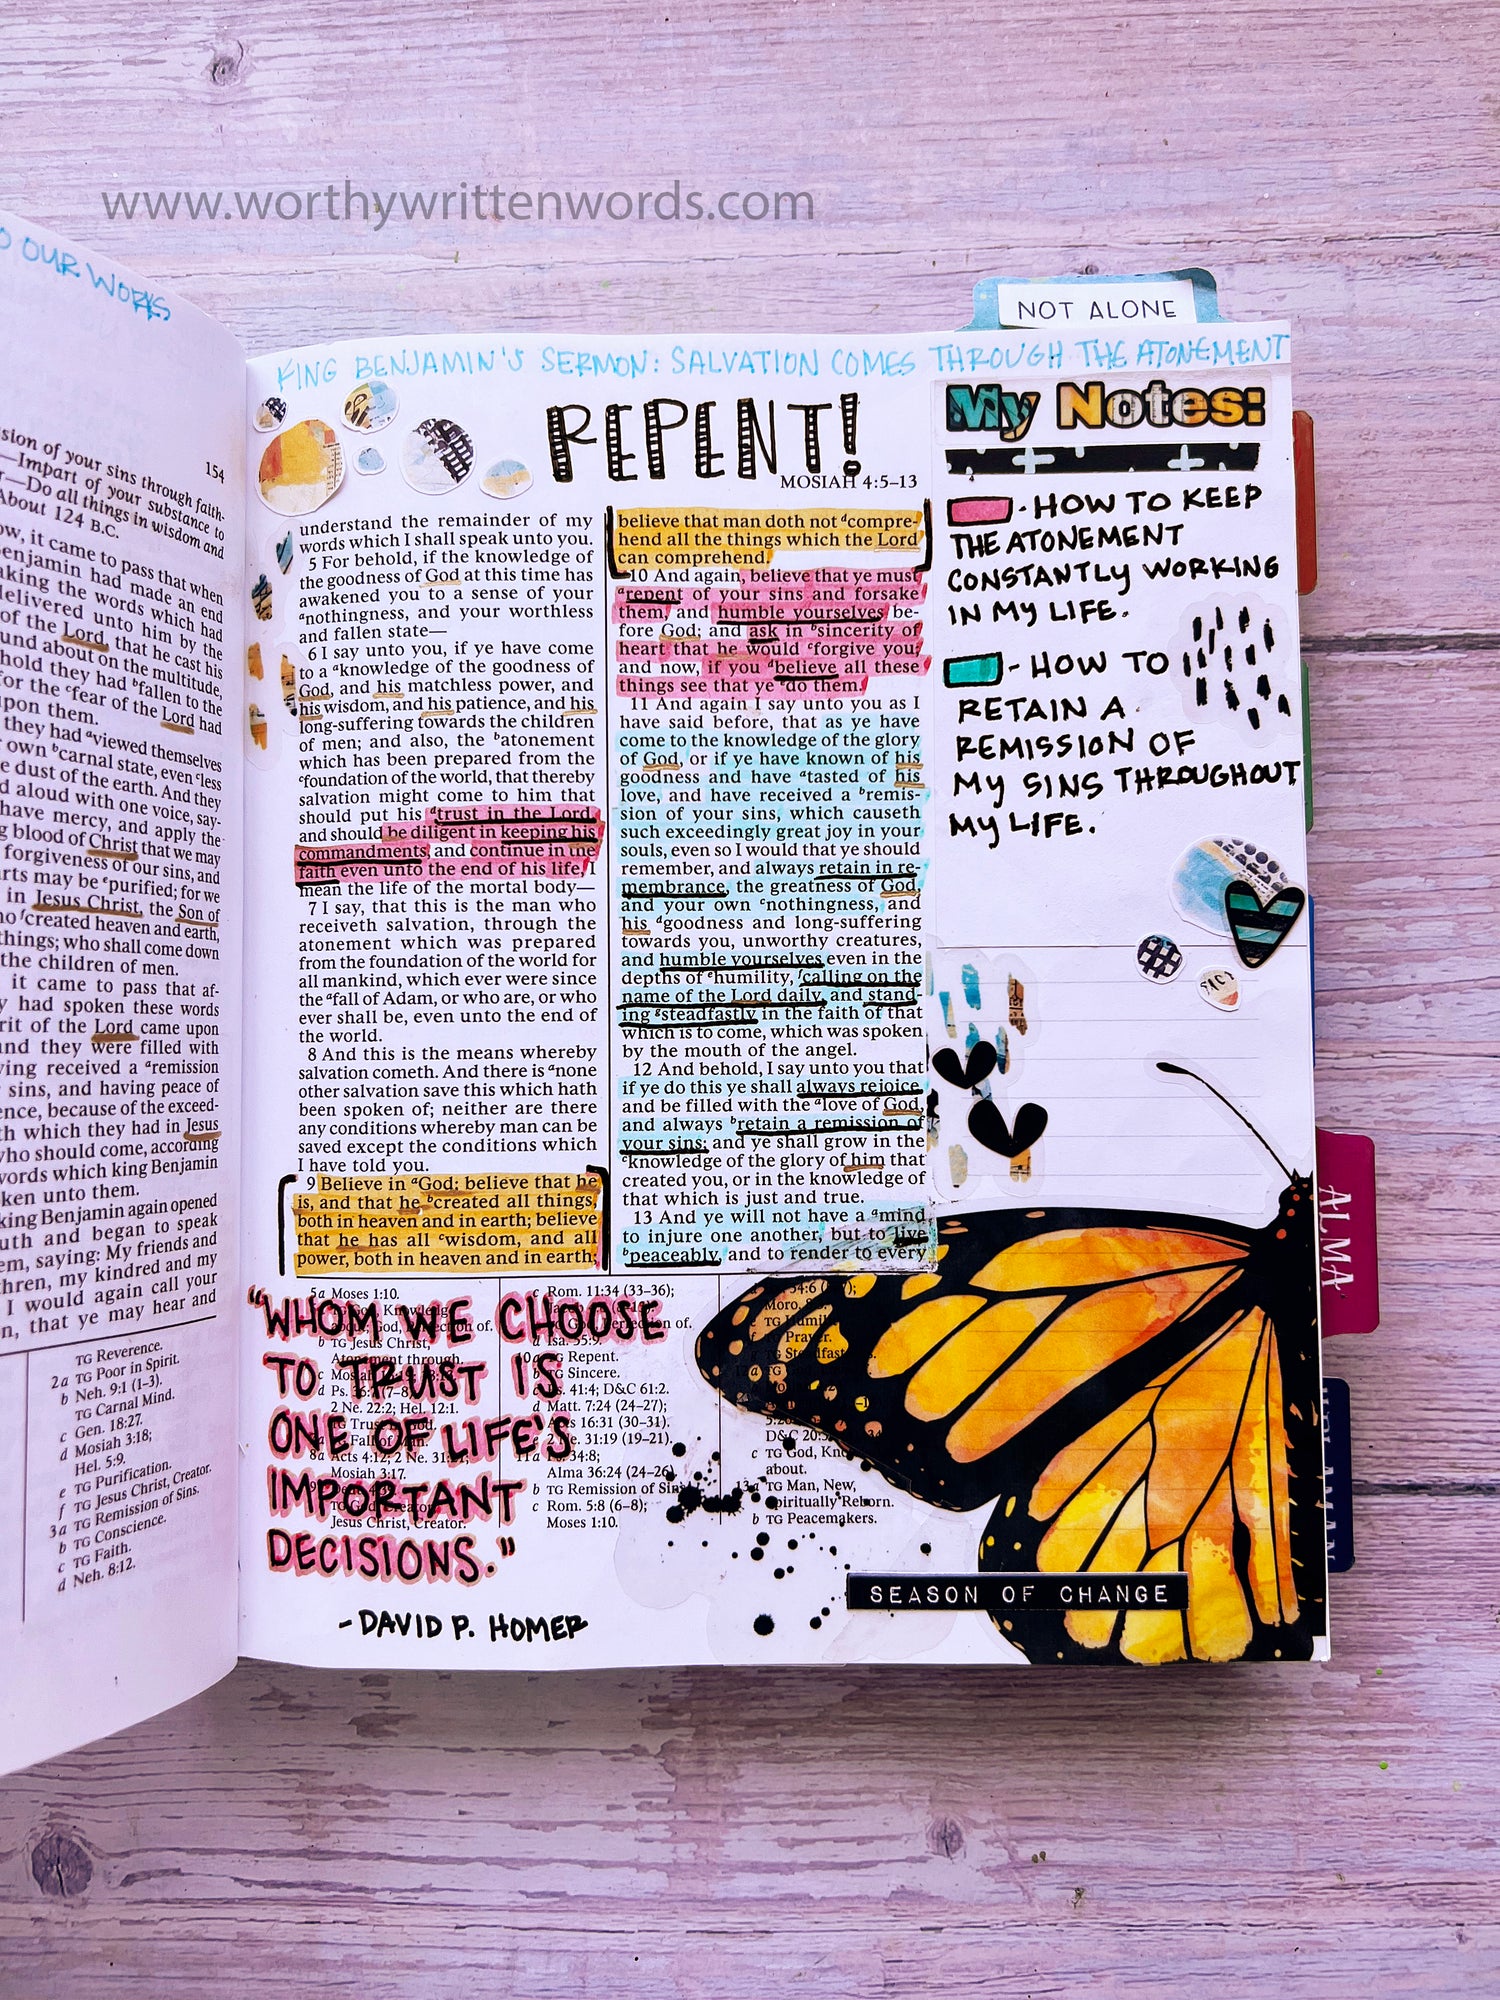 www.worthywrittenwords.com
O OUR WORKS
154
sion of your sins through faith-
—Impart of your substance to
—Do all things in wisdom and
About 124 B.C.
ow, it came to pass that when
enjamin had made an end
aking the words which had
delivered unto him by the
of the Lord, that he cast his
und about on the multitude,
hold they had ᵇfallen to the
for the ᶜfear of the Lord had
upon them.
they had ᵃviewed themselves
own ᵇcarnal state, even ᶜless
e dust of the earth. And they
d aloud with one voice, say-
have mercy, and apply the
g blood of Christ that we may
forgiveness of our sins, and
arts may be ᵉpurified; for we
in Jesus Christ, the Son of
ho ᶠcreated heaven and earth,
things; who shall come down
the children of men.
it came to pass that af-
y had spoken these words
rit of the Lord came upon
and they were filled with
ving received a ᵃremission
sins, and having peace of
ence, because of the exceed-
th which they had in Jesus
who should come, according
words which king Benjamin
ken unto them.
king Benjamin again opened
uth and began to speak
em, saying: My friends and
thren, my kindred and my
I would again call your
n, that ye may hear and
TG Reverence.
2a TG Poor in Spirit.
b Neh. 9:1 (1–3).
TG Carnal Mind.
c Gen. 18:27.
d Mosiah 3:18;
Hel. 5:9.
e TG Purification.
f TG Jesus Christ, Creator.
3a TG Remission of Sins.
b TG Conscience.
c TG Faith.
d Neh. 8:12.
NOT ALONE
KING BENJAMIN'S SERMON: SALVATION COMES THROUGH THE ATONEMENT
REPENT!
MOSIAH 4:5–13
understand the remainder of my
words which I shall speak unto you.
5 For behold, if the knowledge of
the goodness of God at this time has
awakened you to a sense of your
ᵃnothingness, and your worthless
and fallen state—
6 I say unto you, if ye have come
to a ᵃknowledge of the goodness of
God, and his matchless power, and
his wisdom, and his patience, and his
long-suffering towards the children
of men; and also, the ᵇatonement
which has been prepared from the
ᶜfoundation of the world, that thereby
salvation might come to him that
should put his ᵈtrust in the Lord,
and should be diligent in keeping his
commandments, and continue in the
faith even unto the end of his life, I
mean the life of the mortal body—
7 I say, that this is the man who
receiveth salvation, through the
atonement which was prepared
from the foundation of the world for
all mankind, which ever were since
the ᵃfall of Adam, or who are, or who
ever shall be, even unto the end of
the world.
8 And this is the means whereby
salvation cometh. And there is ᵃnone
other salvation save this which hath
been spoken of; neither are there
any conditions whereby man can be
saved except the conditions which
I have told you.
9 Believe in ᵃGod; believe that he
is, and that he ᵇcreated all things,
both in heaven and in earth; believe
that he has all ᶜwisdom, and all
power, both in heaven and in earth;
believe that man doth not ᵈcompre-
hend all the things which the Lord
can comprehend.
10 And again, believe that ye must
ᵃrepent of your sins and forsake
them, and humble yourselves be-
fore God; and ask in ᵇsincerity of
heart that he would ᶜforgive you;
and now, if you ᵈbelieve all these
things see that ye ᵉdo them.
11 And again I say unto you as I
have said before, that as ye have
come to the knowledge of the glory
of God, or if ye have known of his
goodness and have ᵃtasted of his
love, and have received a ᵇremis-
sion of your sins, which causeth
such exceedingly great joy in your
souls, even so I would that ye should
remember, and always retain in re-
membrance, the greatness of God,
and your own ᶜnothingness, and
his ᵈgoodness and long-suffering
towards you, unworthy creatures,
and humble yourselves even in the
depths of ᵉhumility, ᶠcalling on the
name of the Lord daily, and stand-
ing ᵍsteadfastly in the faith of that
which is to come, which was spoken
by the mouth of the angel.
12 And behold, I say unto you that
if ye do this ye shall always rejoice,
and be filled with the ᵃlove of God,
and always ᵇretain a remission of
your sins; and ye shall grow in the
ᶜknowledge of the glory of him that
created you, or in the knowledge of
that which is just and true.
13 And ye will not have a ᵃmind
to injure one another, but to live
ᵇpeaceably, and to render to every
My Notes:
- HOW TO KEEP
THE ATONEMENT
CONSTANTLY WORKING
IN MY LIFE.
- HOW TO
RETAIN A
REMISSION OF
MY SINS THROUGHOUT
MY LIFE.
ALMA
"WHOM WE CHOOSE
TO TRUST IS
ONE OF LIFE'S
IMPORTANT
DECISIONS."
- DAVID P. HOMER
5a Moses 1:10.
TG Jesus Christ,
Atonement through.
2 Ne. 22:2; Hel. 12:1.
Mosiah 3:17.
Jesus Christ, Creator.
c Rom. 11:34 (33–36);
Isa. 55:9.
TG Repent.
TG Sincere.
Ps. 41:4; D&C 61:2.
d Matt. 7:24 (24–27);
Acts 16:31 (30–31).
2 Ne. 31:19 (19–21).
11a Ps. 34:8;
Alma 36:24 (24–26).
b TG Remission of Sins.
c Rom. 5:8 (6–8);
Moses 1:10.
c TG God,
about.
13a TG Man, New,
Spiritually Reborn.
b TG Peacemakers.
SEASON OF CHANGE